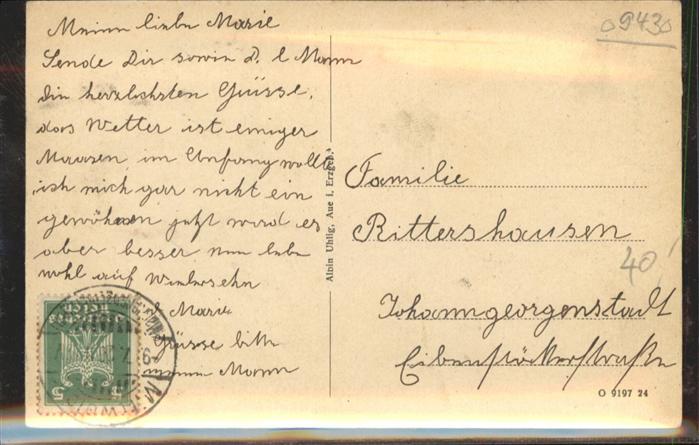 Meine liebe Marie
Sende Dir sowie d. l Mann
die herzlichsten Grüsse,
das Wetter ist einiger
Maasen, im Anfang wollte
ich mich gar nicht ein
gewöhnen jetzt wird es
aber besser nun lebe
wohl auf Wiedersehn
l Marie
Grüsse bitte
meinen Mann
Albin Uhlig, Aue i. Erzgeb.
09430
Familie
Rittershausen
40
Johanngeorgenstadt
Eibenstöckerstraße
O 9197 24
5 5